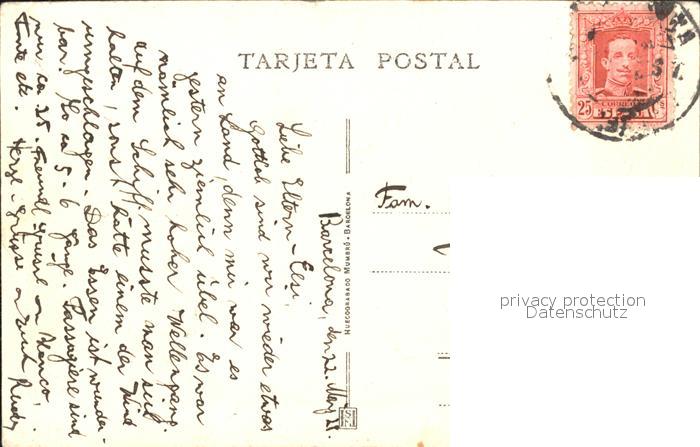 TARJETA POSTAL
25
CORREOS
ESPAÑA
Cs
Fam.
HUECOGRABADO MUMBRÚ - BARCELONA
privacy protection
Datenschutz
Barcelona, den 22. May
Liebe Eltern -
Gottlob sind wir wieder etwas
an Land, denn mir war es
gestern ziemlich übel. Es war
nämlich sehr hoher Wellengang
auf dem Schiff musste man sich
halten, sonst hätte einem der Wind
umgeschlagen. Das Essen ist wunder-
bar. So ca 5-6 Gänge. Passagiere sind
nur ca 25. Freundl. Grüsse
Tante etc. Herzl. Grüsse